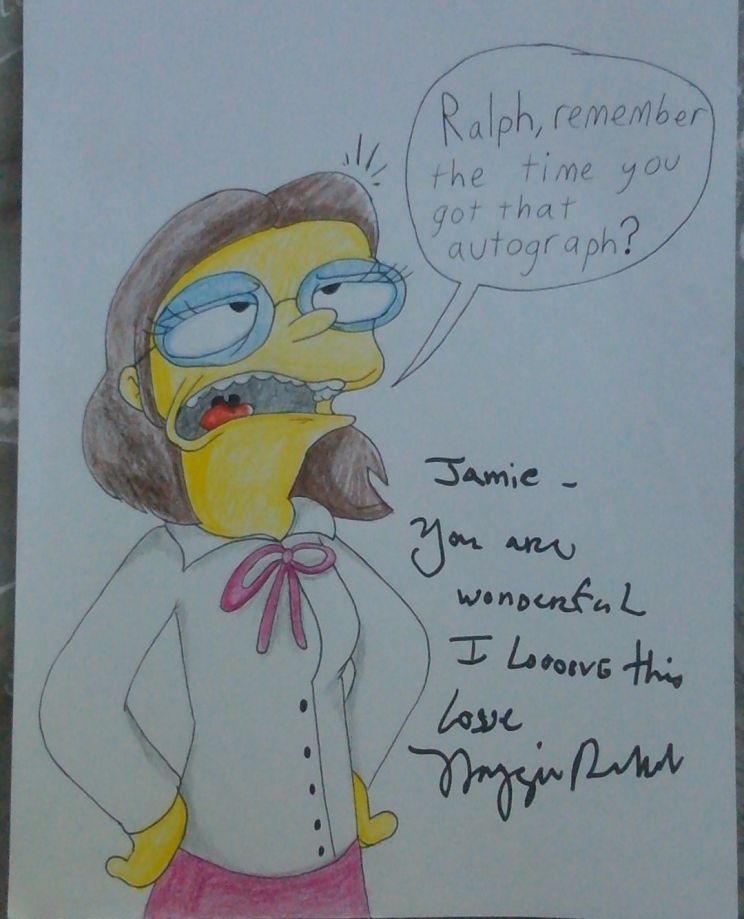 Ralph, remember
the time you
got that
autograph?
Jamie -
You are
wonderful
I Looove this
Love
Maggie